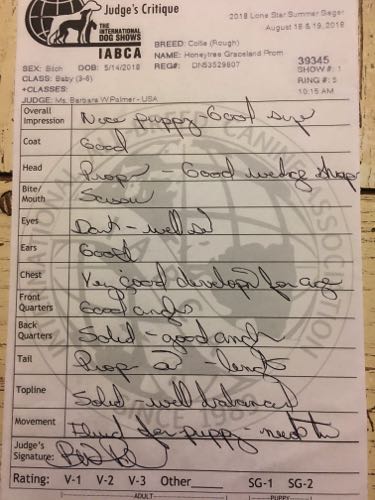 Judge's Critique
2018 Lone Star Summer Sieger
August 18 & 19, 2018
THE
INTERNATIONAL
DOG SHOWS
IABCA
BREED: Collie (Rough)
NAME: Honeytree Graceland Prom
39345
SEX: Bitch DOB: 5/14/2018 REG#: DN53529807
SHOW #: 1
CLASS: Baby (3-6)
RING #: 5
+CLASSES:
10:15 AM
JUDGE: Ms. Barbara W Palmer - USA
Overall Impression Nice puppy - Good size
Coat Good
Head Proper - Good wedge shape
Bite/Mouth Scissor
Eyes Dark - well set
Ears Good
Chest Very good develop for age
Front Quarters Good angle
Back Quarters Solid - good angle
Tail Prop - length
Topline Solid well balanced
Movement Fluid for puppy - need
Judge's Signature:
Rating: V-1 V-2 V-3 Other SG-1 SG-2
ADULT PUPPY